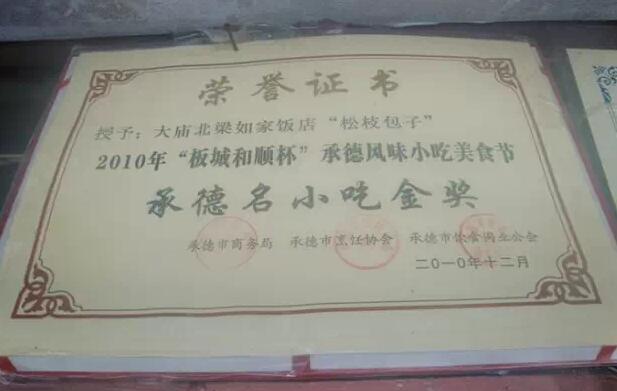 荣誉证书
授予：大庙北梁如家饭店“松枝包子”
2010年“板城和顺杯”承德风味小吃美食节
承德名小吃金奖
承德市商务局 承德市烹饪协会 承德市饮食同业公会
二〇一〇年十二月